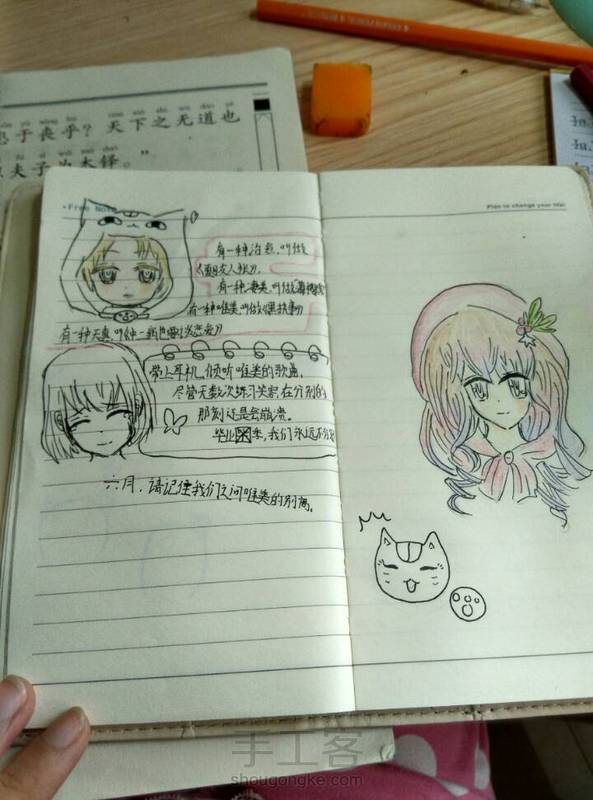 yú sàng hū tiān xià zhī wú dào yě
于丧乎？天下之无道也
夫子为木铎。”
•Free Note
Plan to change your life!
有一种治愈，叫做
《夏目友人帐》，
有一种凄美，叫做
有一种唯美，叫做《黑执事》
有一种天真，叫
带上耳机，倾听唯美的歌曲
尽管无数次练习失宗，在分别的
那刻还是会崩溃。
毕业季，我们永远不分
六月．请记住我们之间唯美的别离。
手工客
shougongke.com